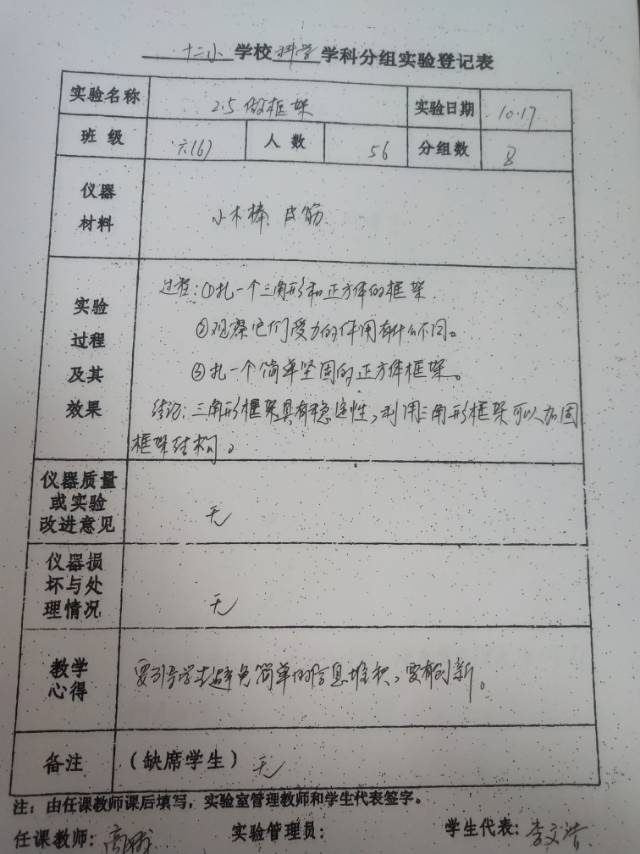 十二小学校科学学科分组实验登记表
实验名称 2.5 做框架 实验日期 10.17
班级 六(6) 人数 56 分组数 8
仪器材料 小木棒、皮筋
实验过程及其效果
过程:①扎一个三角形和正方体的框架
②观察它们受力的作用有什么不同。
③扎一个简单坚固的正方体框架。
结论:三角形框架具有稳定性,利用三角形框架可以加固
框架结构。
仪器质量或实验改进意见 无
仪器损坏与处理情况 无
教学心得 要引导学生避免简单的信息堆积,要有创新。
备注 (缺席学生) 无
注:由任课教师课后填写,实验室管理教师和学生代表签字。
任课教师:高 实验管理员: 学生代表:李文浩